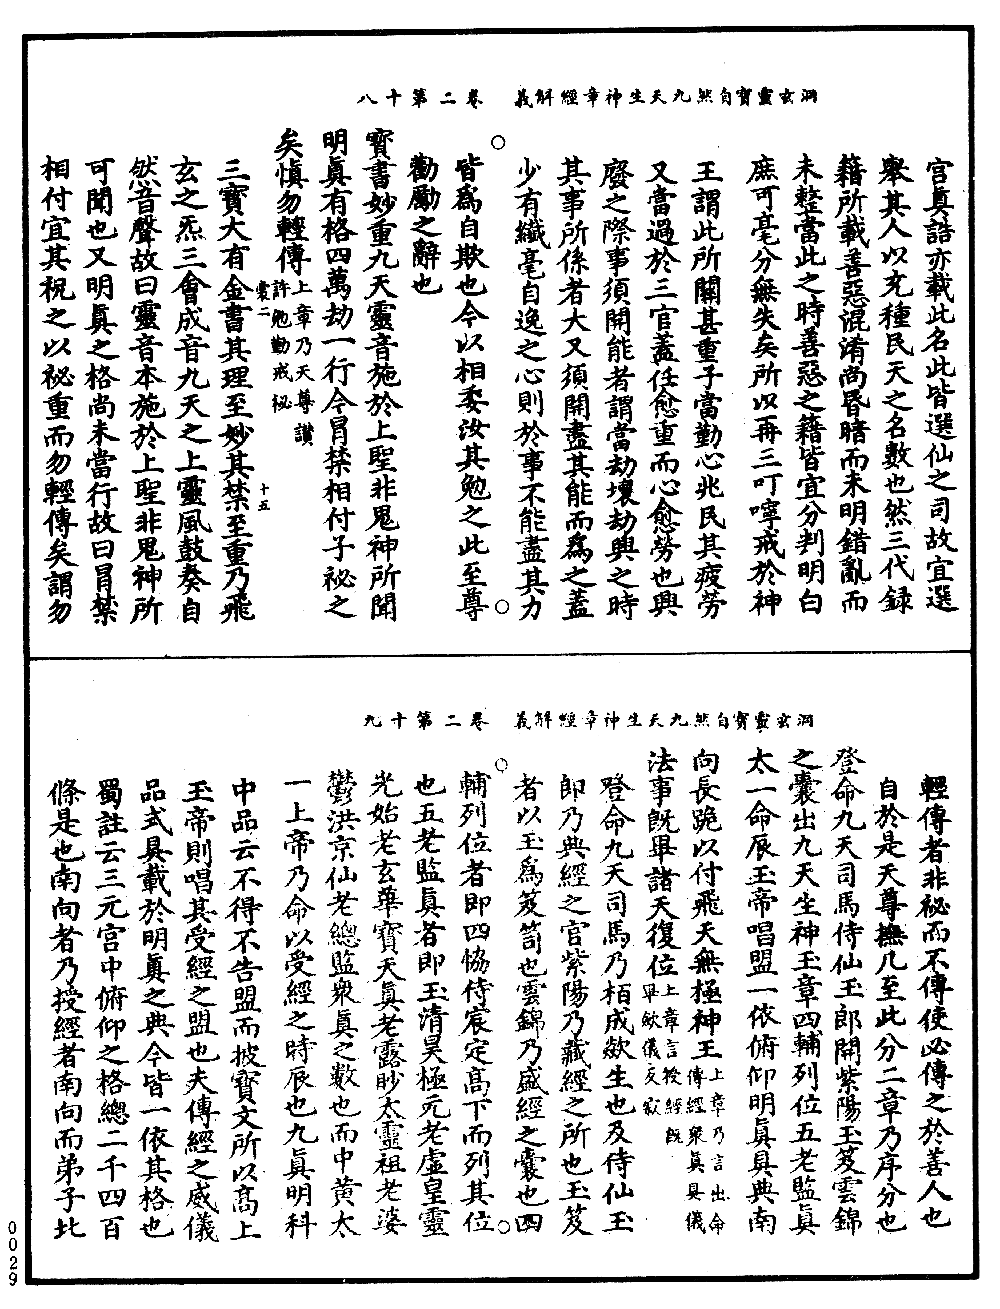 洞玄靈寶自然九天生神章經解義　卷二第十八
宫真誥亦載此名此皆選仙之司故宜選
舉其人以充種民天之名數也然三代錄
籍所載善惡混淆尚昬暗而未明錯亂而
未整當此之時善惡之籍皆宜分判明白
庶可毫分無失矣所以再三叮嚀戒於神
王謂此所關甚重子當勤心兆民其疲勞
又當過於三官蓋任愈重而心愈勞也興
廢之際事須開能者謂當劫壞劫興之時
其事所係者大又須開盡其能而爲之蓋
少有纖毫自逸之心則於事不能盡其力
皆爲自欺也今以相委汝其勉之此至尊
勸勵之辭也
寳書妙重九天靈音施於上聖非鬼神所聞
明真有格四萬劫一行今冒禁相付子祕之
矣慎勿輕傳上章乃天尊讃
許勉勤戒祕
裳二　十五
三寳大有金書其理至妙其禁至重乃飛
玄之炁三會成音九天之上靈風鼓奏自
然音聲故曰靈音本施於上聖非鬼神所
可聞也又明真之格尚未當行故曰冒禁
相付宜其祝之以祕重而勿輕傳矣謂勿
洞玄靈寶自然九天生神章經解義　卷二第十九
輕傳者非祕而不傳使必傳之於善人也
自於是天尊撫几至此分二章乃序分也
登命九天司馬侍仙玉郎開紫陽玉笈雲錦
之囊出九天生神玉章四輔列位五老監真
太一命辰玉帝唱盟一依俯仰明真具典南
向長跪以付飛天無極神王上章乃言出命
傳經衆真具儀
法事既畢諸天復位上章言授經既
畢斂儀反寂
登命九天司馬乃栢成欻生也及侍仙玉
郎乃典經之官紫陽乃藏經之所也玉笈
者以玉爲笈笥也雲錦乃盛經之囊也四
輔列位者即四恊侍宸定高下而列其位
也五老監真者即玉清昊極元老虚皇靈
光始老玄華寳天真老露眇太靈祖老婆
鬱洪京仙老總監衆真之數也而中黄太
一上帝乃命以受經之時辰也九真明科
中品云不得不告盟而披寳文所以高上
玉帝則唱其受經之盟也夫傳經之威儀
品式具載於明真之典今皆一依其格也
蜀註云三元宫中俯仰之格總二千四百
條是也南向者乃授經者南向而弟子北
0029